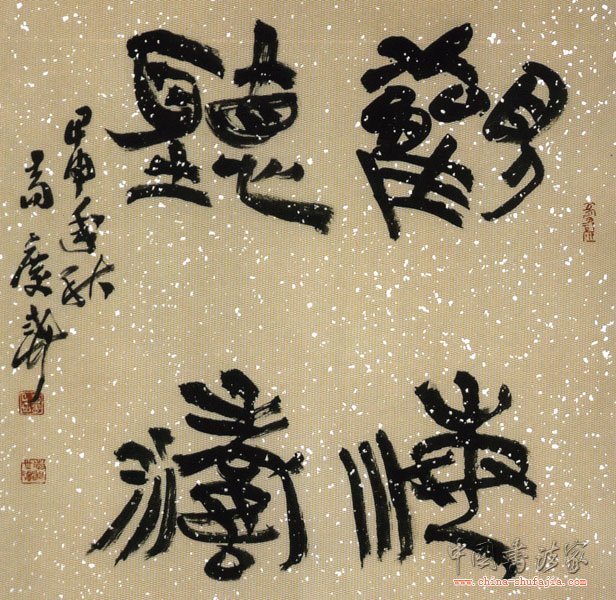 觀海
聽濤
甲申年秋
高慶春
中國書法家
www.china-shufajia.com